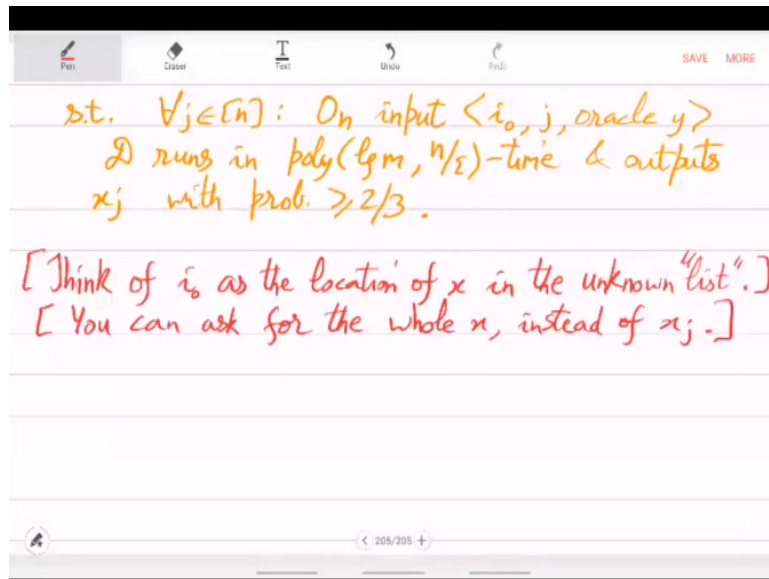 Pen Eraser Text Undo Redo SAVE MORE
s.t. ∀j∈[n] : On input <i₀, j, oracle y>
D runs in poly(lg m, n/ε)-time & outputs
xj with prob. ≥ 2/3 .
[Think of i₀ as the location of x in the unknown "list".]
[ You can ask for the whole x, instead of xj .]
< 205/205 +